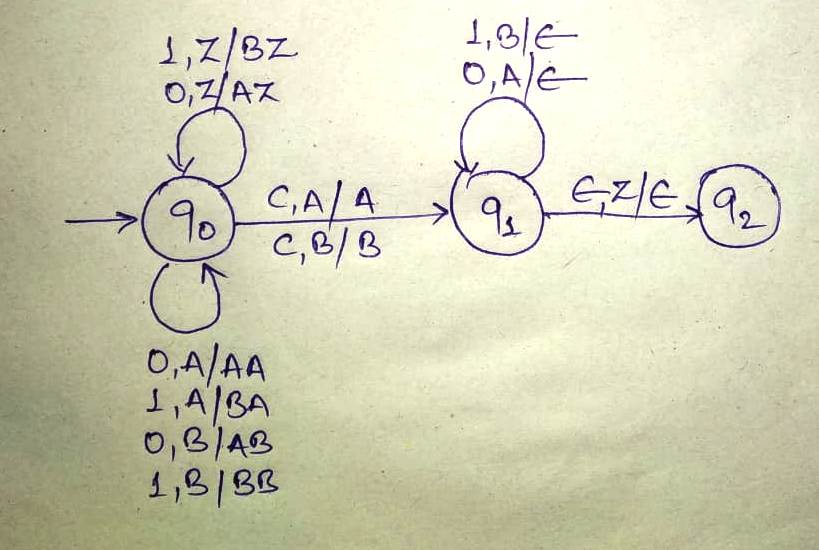 1,Z/BZ
0,Z/AZ
1,B/Є
0,A/Є
q0
C,A/A
C,B/B
q1
Є,Z/Є
q2
0,A/AA
1,A/BA
0,B/AB
1,B/BB